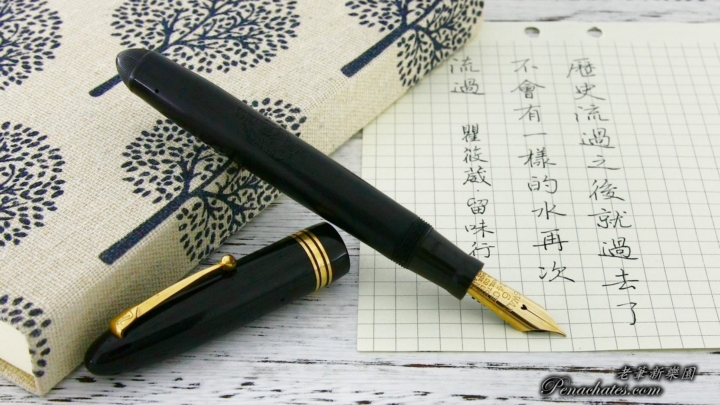 歷史流過之後就過去了
不會有一樣的水再次
流過 瞿筱葳 留味行
老筆新樂園
Penachates.com